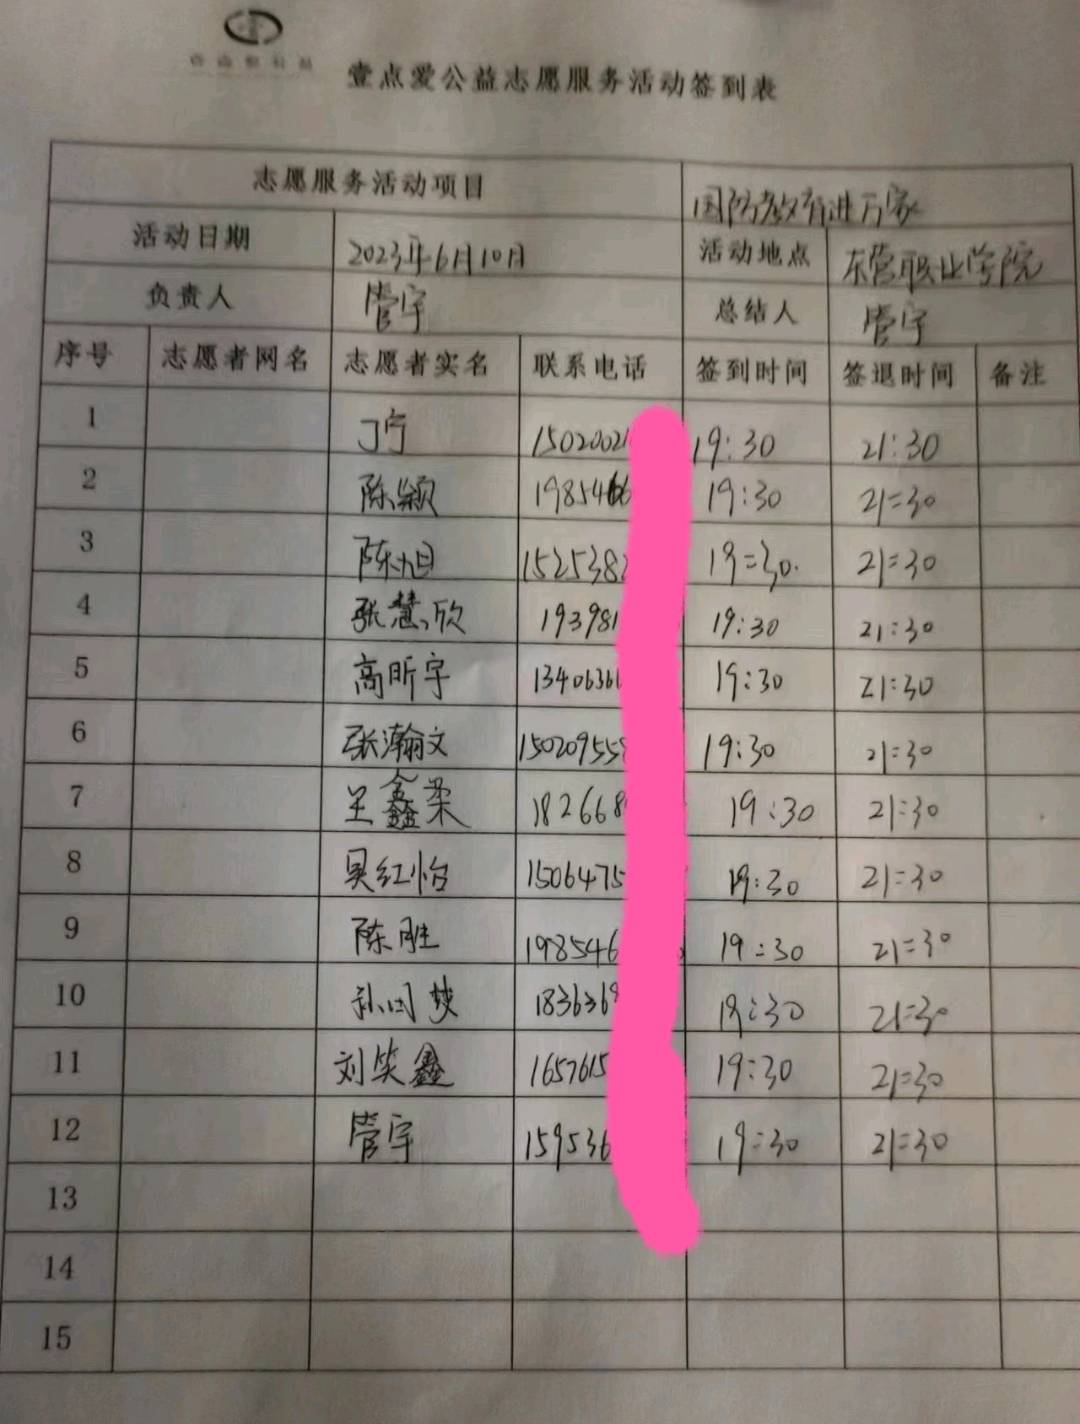 壹点爱公益志愿服务活动签到表
志愿服务活动项目 国防教育进万家
活动日期 2023年6月10日 活动地点 东营职业学院
负责人 管宇 总结人 管宇
序号 志愿者网名 志愿者实名 联系电话 签到时间 签退时间 备注
1 丁宁 1502002 19:30 21:30
2 陈颖 1985466 19:30 21:30
3 陈旭 1525382 19:30 21:30
4 张慧欣 193981 19:30 21:30
5 高昕宇 1340636 19:30 21:30
6 张瀚文 150209558 19:30 21:30
7 王鑫柔 182668 19:30 21:30
8 吴红怡 1506475 19:30 21:30
9 陈胜 198546 19:30 21:30
10 孙 183636 19:30 21:30
11 刘笑鑫 1657615 19:30 21:30
12 管宇 159536 19:30 21:30
13
14
15